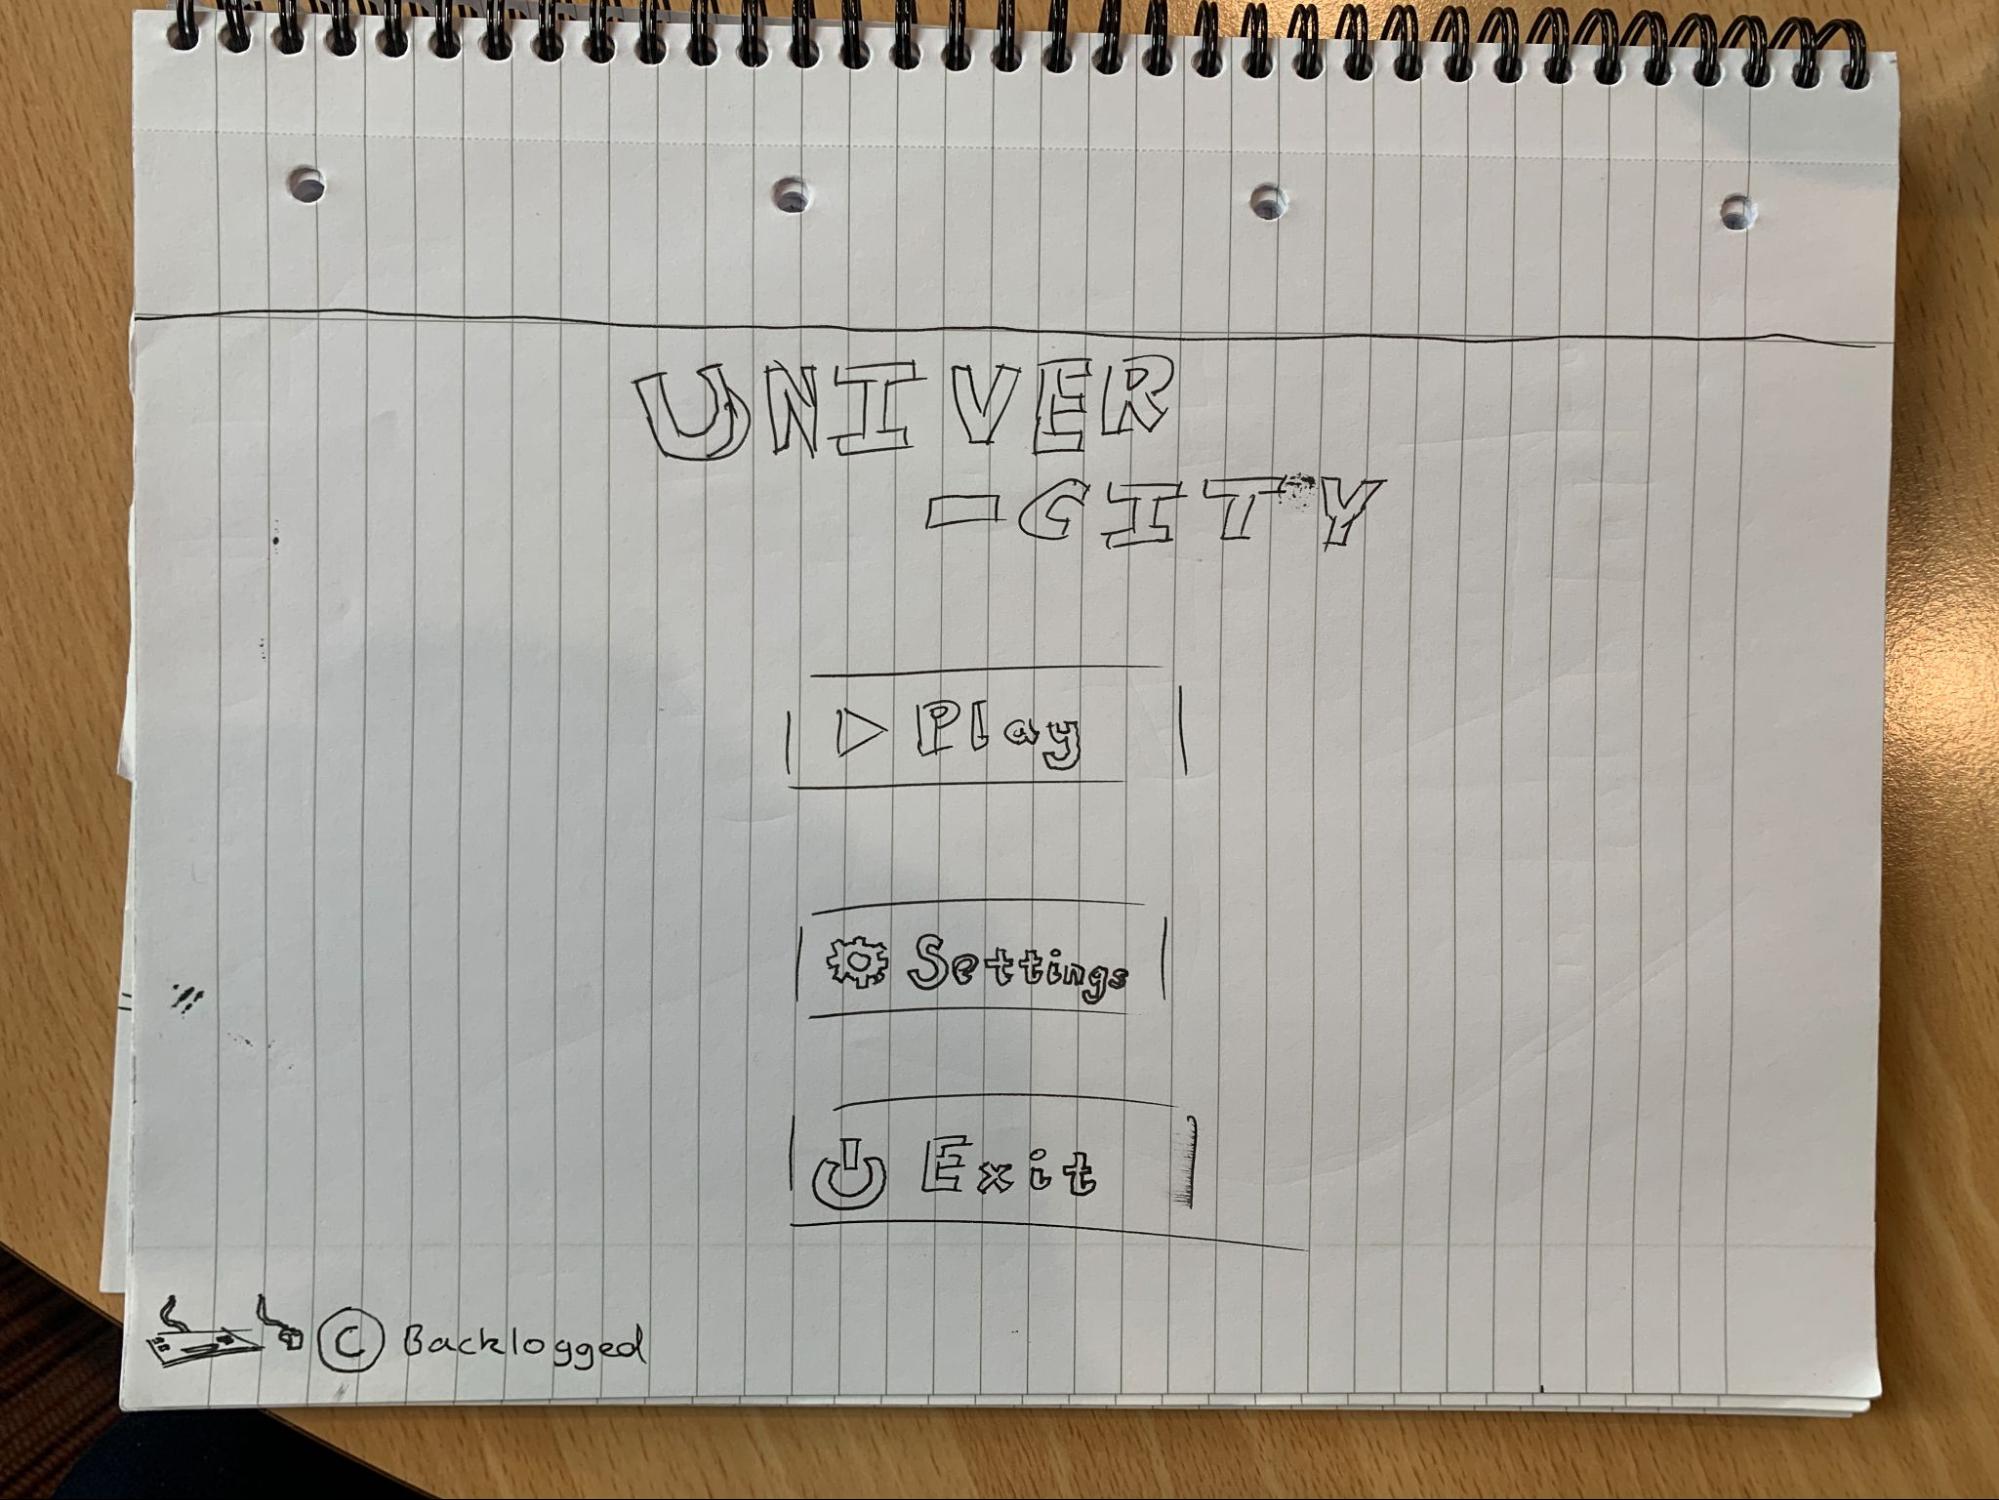 UNIVER
-CITY
Play
Settings
Exit
© Backlogged